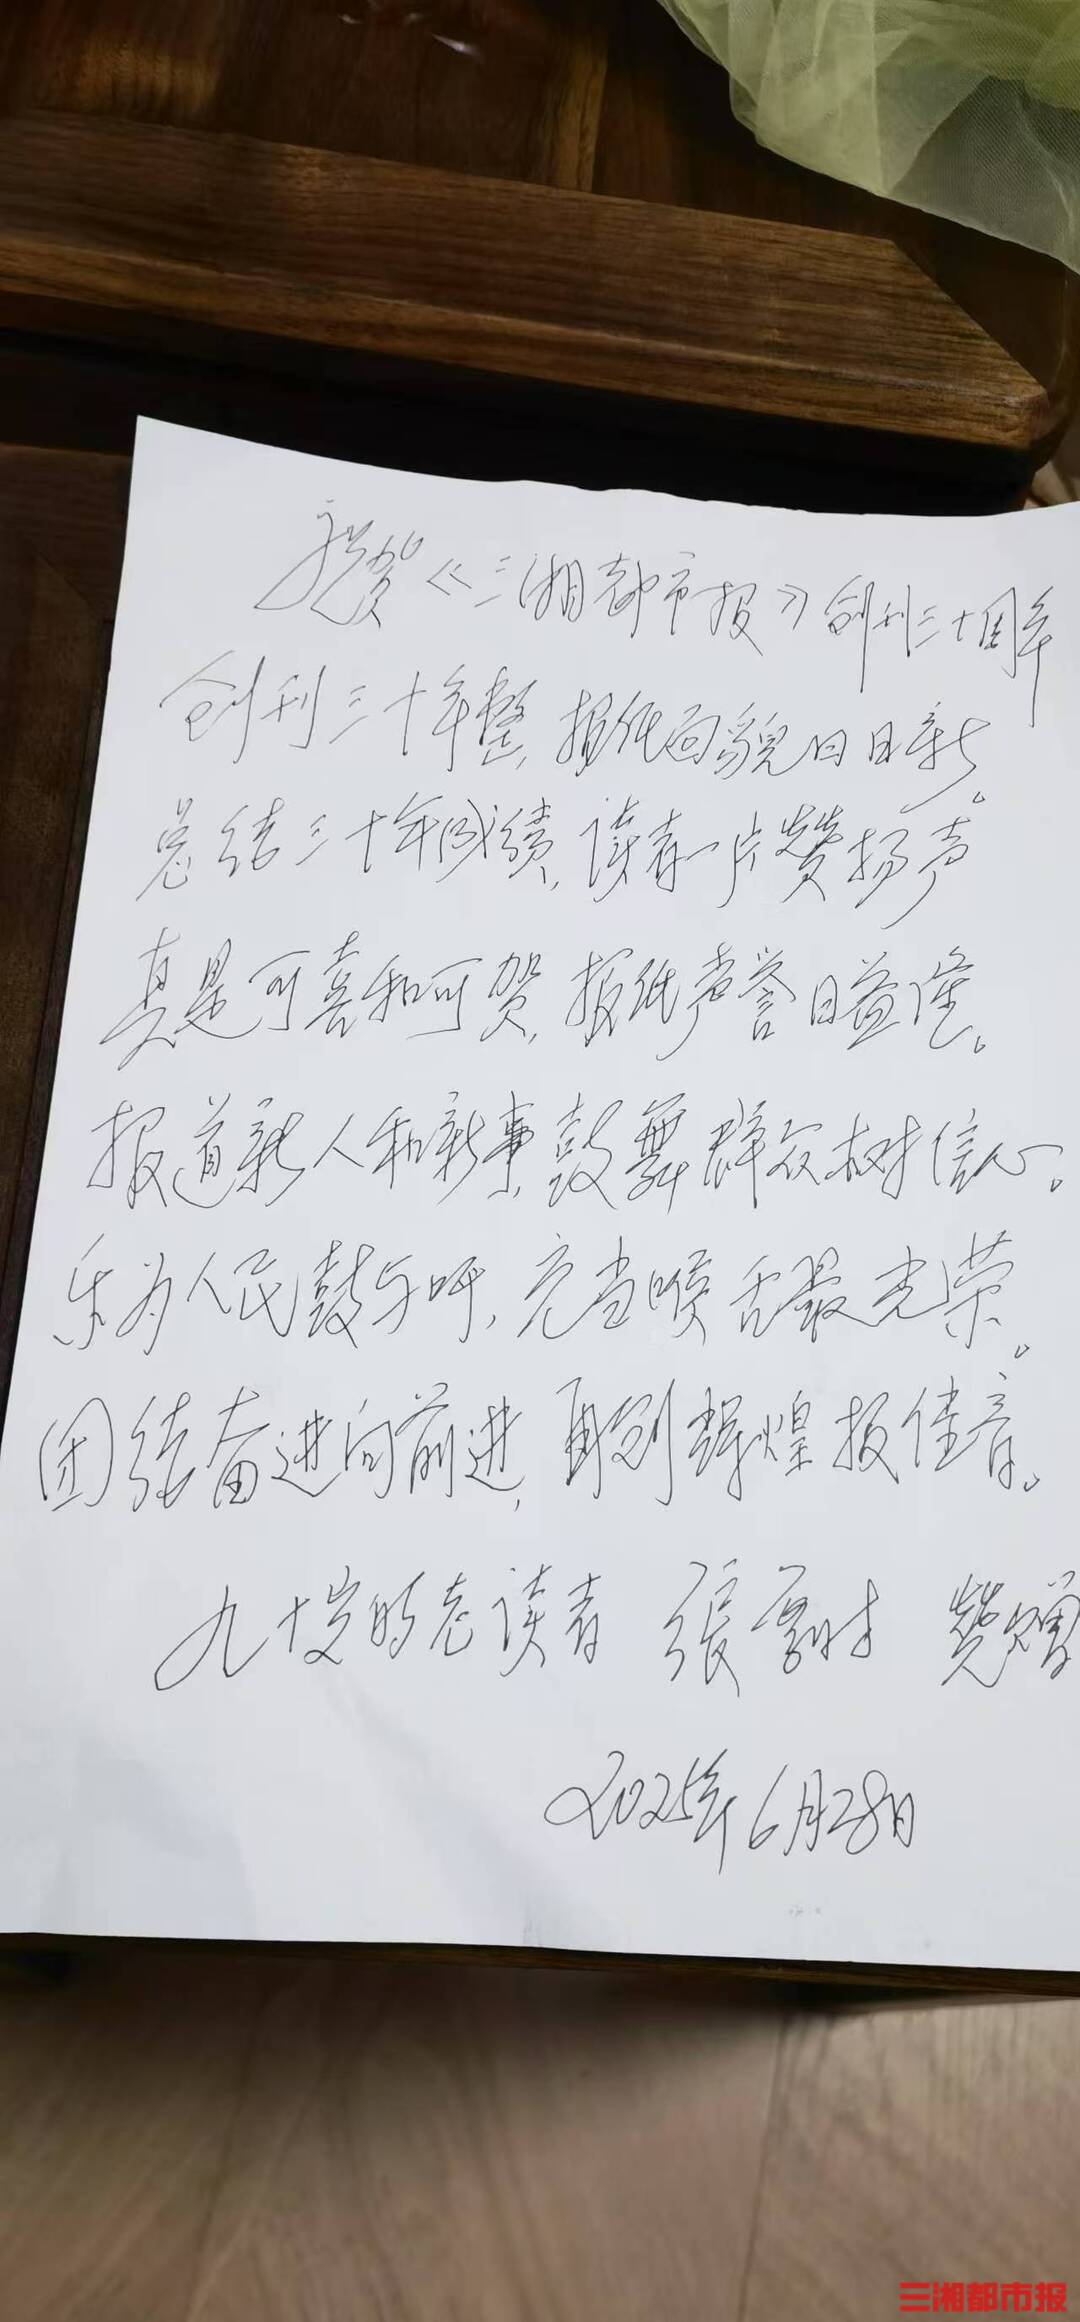 祝贺《三湘都市报》创刊三十周年
创刊三十年整，报纸面貌日日新。
总结三十年成绩，读者一片赞扬声
真是可喜和可贺，报纸声誉日益隆。
报道新人和新事，鼓舞群众树信心。
乐为人民鼓与呼，充当喉舌最光荣。
团结奋进向前进，再创辉煌报佳音。
九十岁的老读者 張 敬赠
2025年6月28日
三湘都市报